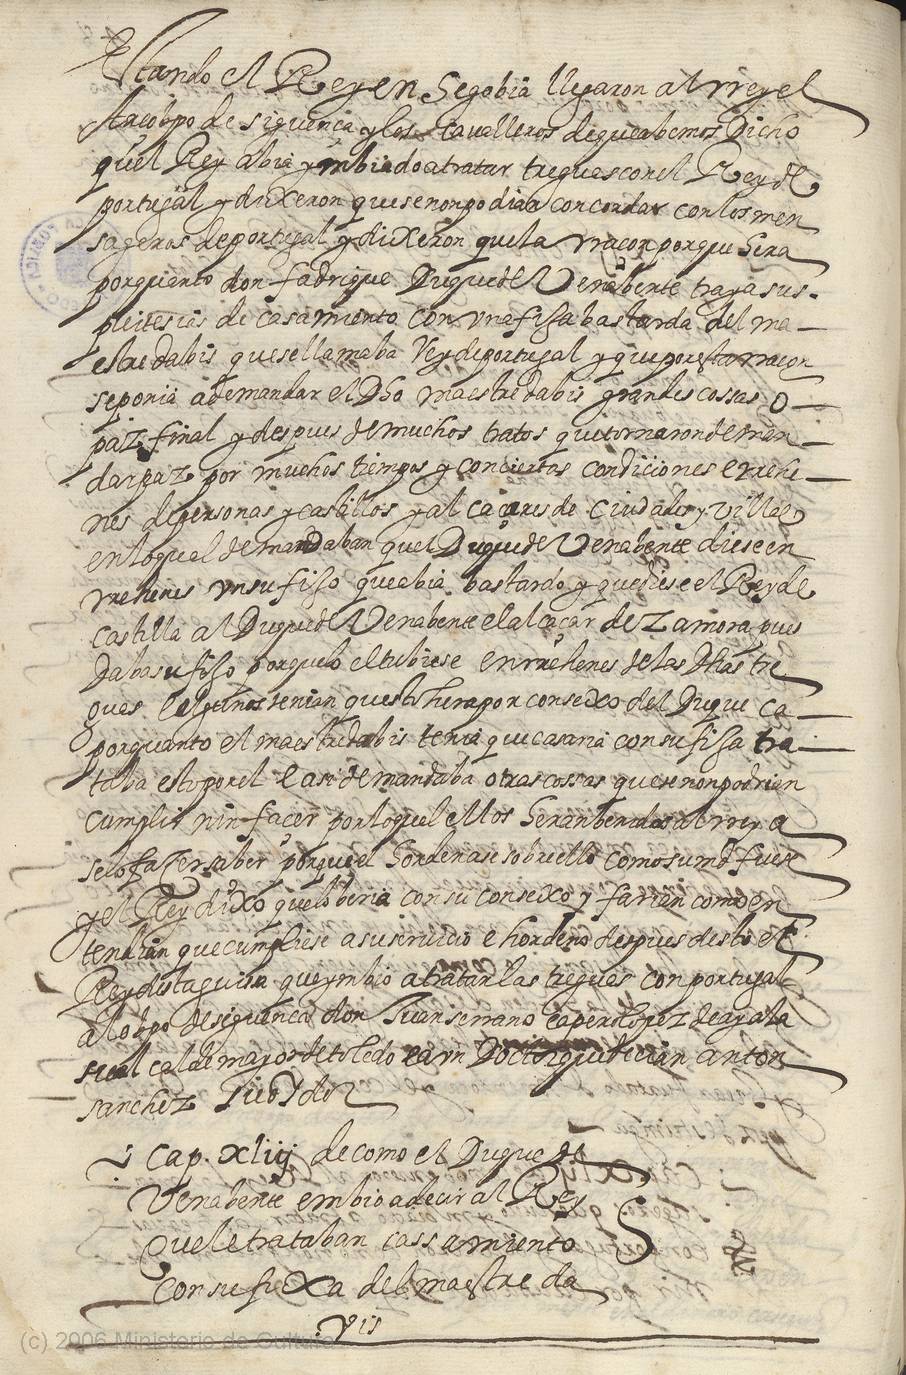 Estando el Rey en Segobia llegaron al rrey el
obpo de siguença y los cavalleros de que abemos Dicho
quel Rey abia ymbiado a tratar treguas con el Rey de
portugal y dixeron que se non podian concordar con los men
sageros de portugal y dixeron que la rraçon porque hera
por quanto don fadrique Duque de Venabente traya sus
pleitesias de casamiento con vna fija bastarda del ma
estre dabis que se llamaba Rey de portugal y que por esta rraçon
se ponia a demandar el Dho maestre dabis grandes cossas o
paz final y despues de muchos tratos que tornaron deman
dar paz por muchos tiempos y con ciertas condiciones e rrehe
nes de personas y castillos y alcaçares de ciudades y villas
en lo qual demandaban quel Duque de Venabente diese en
rrehenes vn su fijo que abia bastardo y que diese el Rey de
castilla al Duque de Venabente el alcaçar de Zamora pues
daba su fijo porque lo el tubiese en rrehenes de las Dhas tre
guas e algunos tenian questo hera por consexo del Duque ca
por quanto el maestre dabis tenia que casaria con su fija tra
taba esto por el e asi demandaba otras cossas que se non podrian
cumplir nin façer por lo qual ellos heran benidos al rrey a
selo façer saber porque el hordenase sobrello como su md fuese
y el Rey dixo que lo beria con su consexo y farian como en
tendian que cumpliese a su seruicio e hordeno despues desto el
Rey desta guisa que ymbio a tratar las treguas con portugal
al obpo de siguença don Juan serrano e a pero lopez de ayala
su alcalde mayor de toledo e a vn Doctor que diçian anton
sanchez
Cap. xliij de como el Duque de
Venabente embio a decir al Rey
que le trataban cassamiento
con su fixa del maestre da
vis
(c) 2006 Ministerio de Cultura